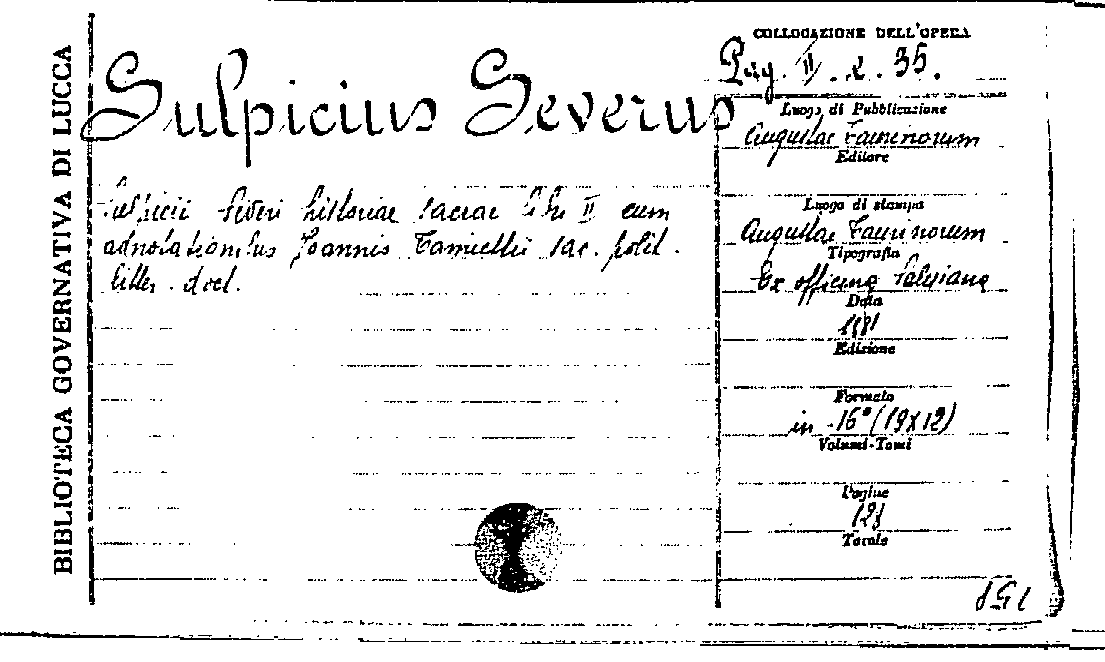 BIBLIOTECA GOVERNATIVA DI LUCCA
Sulpicius Severus
Sulpicii Severi historiae sacrae libri II cum
adnotationibus Joannis Tamiettii sac. polit.
litter. doct.
COLLOCAZIONE DELL'OPERA
Pag. II. 35.
Luogo di Pubblicazione
Augustae Taurinorum
Editore
Luogo di stampa
Augustae Taurinorum
Tipografia
Ex officina Salesiana
Data
Edizione
Formato
in -16° (19x12)
Volumi-Tomi
Pagine
Tavole